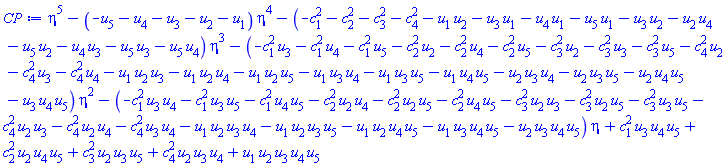 CP := η^5 − (−u_5 − u_4 − u_3 − u_2 − u_1) η^4 − (−c_1^2 − c_2^2 − c_3^2 − c_4^2 − u_1 u_2 − u_3 u_1 − u_4 u_1 − u_5 u_1 − u_3 u_2 − u_2 u_4
− u_5 u_2 − u_4 u_3 − u_5 u_3 − u_5 u_4) η^3 − (−c_1^2 u_3 − c_1^2 u_4 − c_1^2 u_5 − c_2^2 u_2 − c_2^2 u_4 − c_2^2 u_5 − c_3^2 u_2 − c_3^2 u_3 − c_3^2 u_5 − c_4^2 u_2
− c_4^2 u_3 − c_4^2 u_4 − u_1 u_2 u_3 − u_1 u_2 u_4 − u_1 u_2 u_5 − u_1 u_3 u_4 − u_1 u_3 u_5 − u_1 u_4 u_5 − u_2 u_3 u_4 − u_2 u_3 u_5 − u_2 u_4 u_5
− u_3 u_4 u_5) η^2 − (−c_1^2 u_3 u_4 − c_1^2 u_3 u_5 − c_1^2 u_4 u_5 − c_2^2 u_2 u_4 − c_2^2 u_2 u_5 − c_2^2 u_4 u_5 − c_3^2 u_2 u_3 − c_3^2 u_2 u_5 − c_3^2 u_3 u_5 −
c_4^2 u_2 u_3 − c_4^2 u_2 u_4 − c_4^2 u_3 u_4 − u_1 u_2 u_3 u_4 − u_1 u_2 u_3 u_5 − u_1 u_2 u_4 u_5 − u_1 u_3 u_4 u_5 − u_2 u_3 u_4 u_5) η + c_1^2 u_3 u_4 u_5 +
c_2^2 u_2 u_4 u_5 + c_3^2 u_2 u_3 u_5 + c_4^2 u_2 u_3 u_4 + u_1 u_2 u_3 u_4 u_5